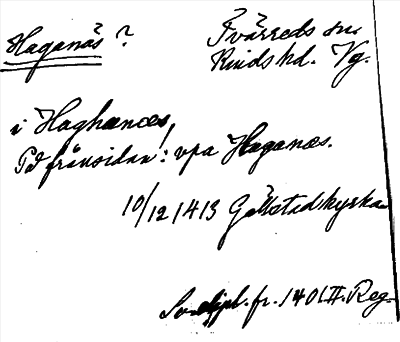 Haganäs?
Tvärreds sn.
Kinds hd. Vg.
i Haghanæs,
På frånsidan: vpa Haganæs.
10/12 1413 Gällstadkyrka
Sv. dipl. fr. 1401 II. Reg.